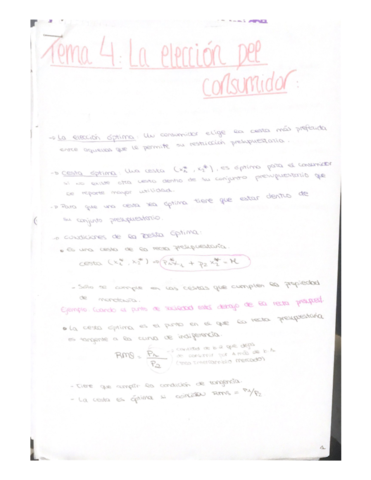 Tema 4: La elección del
consumidor:
→ La elección óptima: Un consumidor elige la cesta más preferida
entre aquellas que le permite su restricción presupuestaria.
→ Cesta óptima: Una cesta (x₁*, x₂*) es óptima para el consumidor
si no existe otra cesta dentro de su conjunto presupuestario que
le reporte mayor utilidad.
→ Para que una cesta sea óptima tiene que estar dentro de
su conjunto presupuestario.
→ Condiciones de la cesta óptima:
Es una cesta de la recta presupuestaria
cesta (x₁*, x₂*) ⇒ p₁x₁ + p₂x₂ = M
- Solo se cumple en las cestas que cumplen la propiedad
de monotonía.
Ejemplo: Cuando el punto de saciedad está debajo de la recta presupuest
• La cesta óptima es el punto en el que la recta presupuestaria
es tangente a la curva de indiferencia.
RMS = P₁/P₂
- Tiene que cumplir la condición de tangencia
- La cesta es óptima si RMS = P₁/P₂